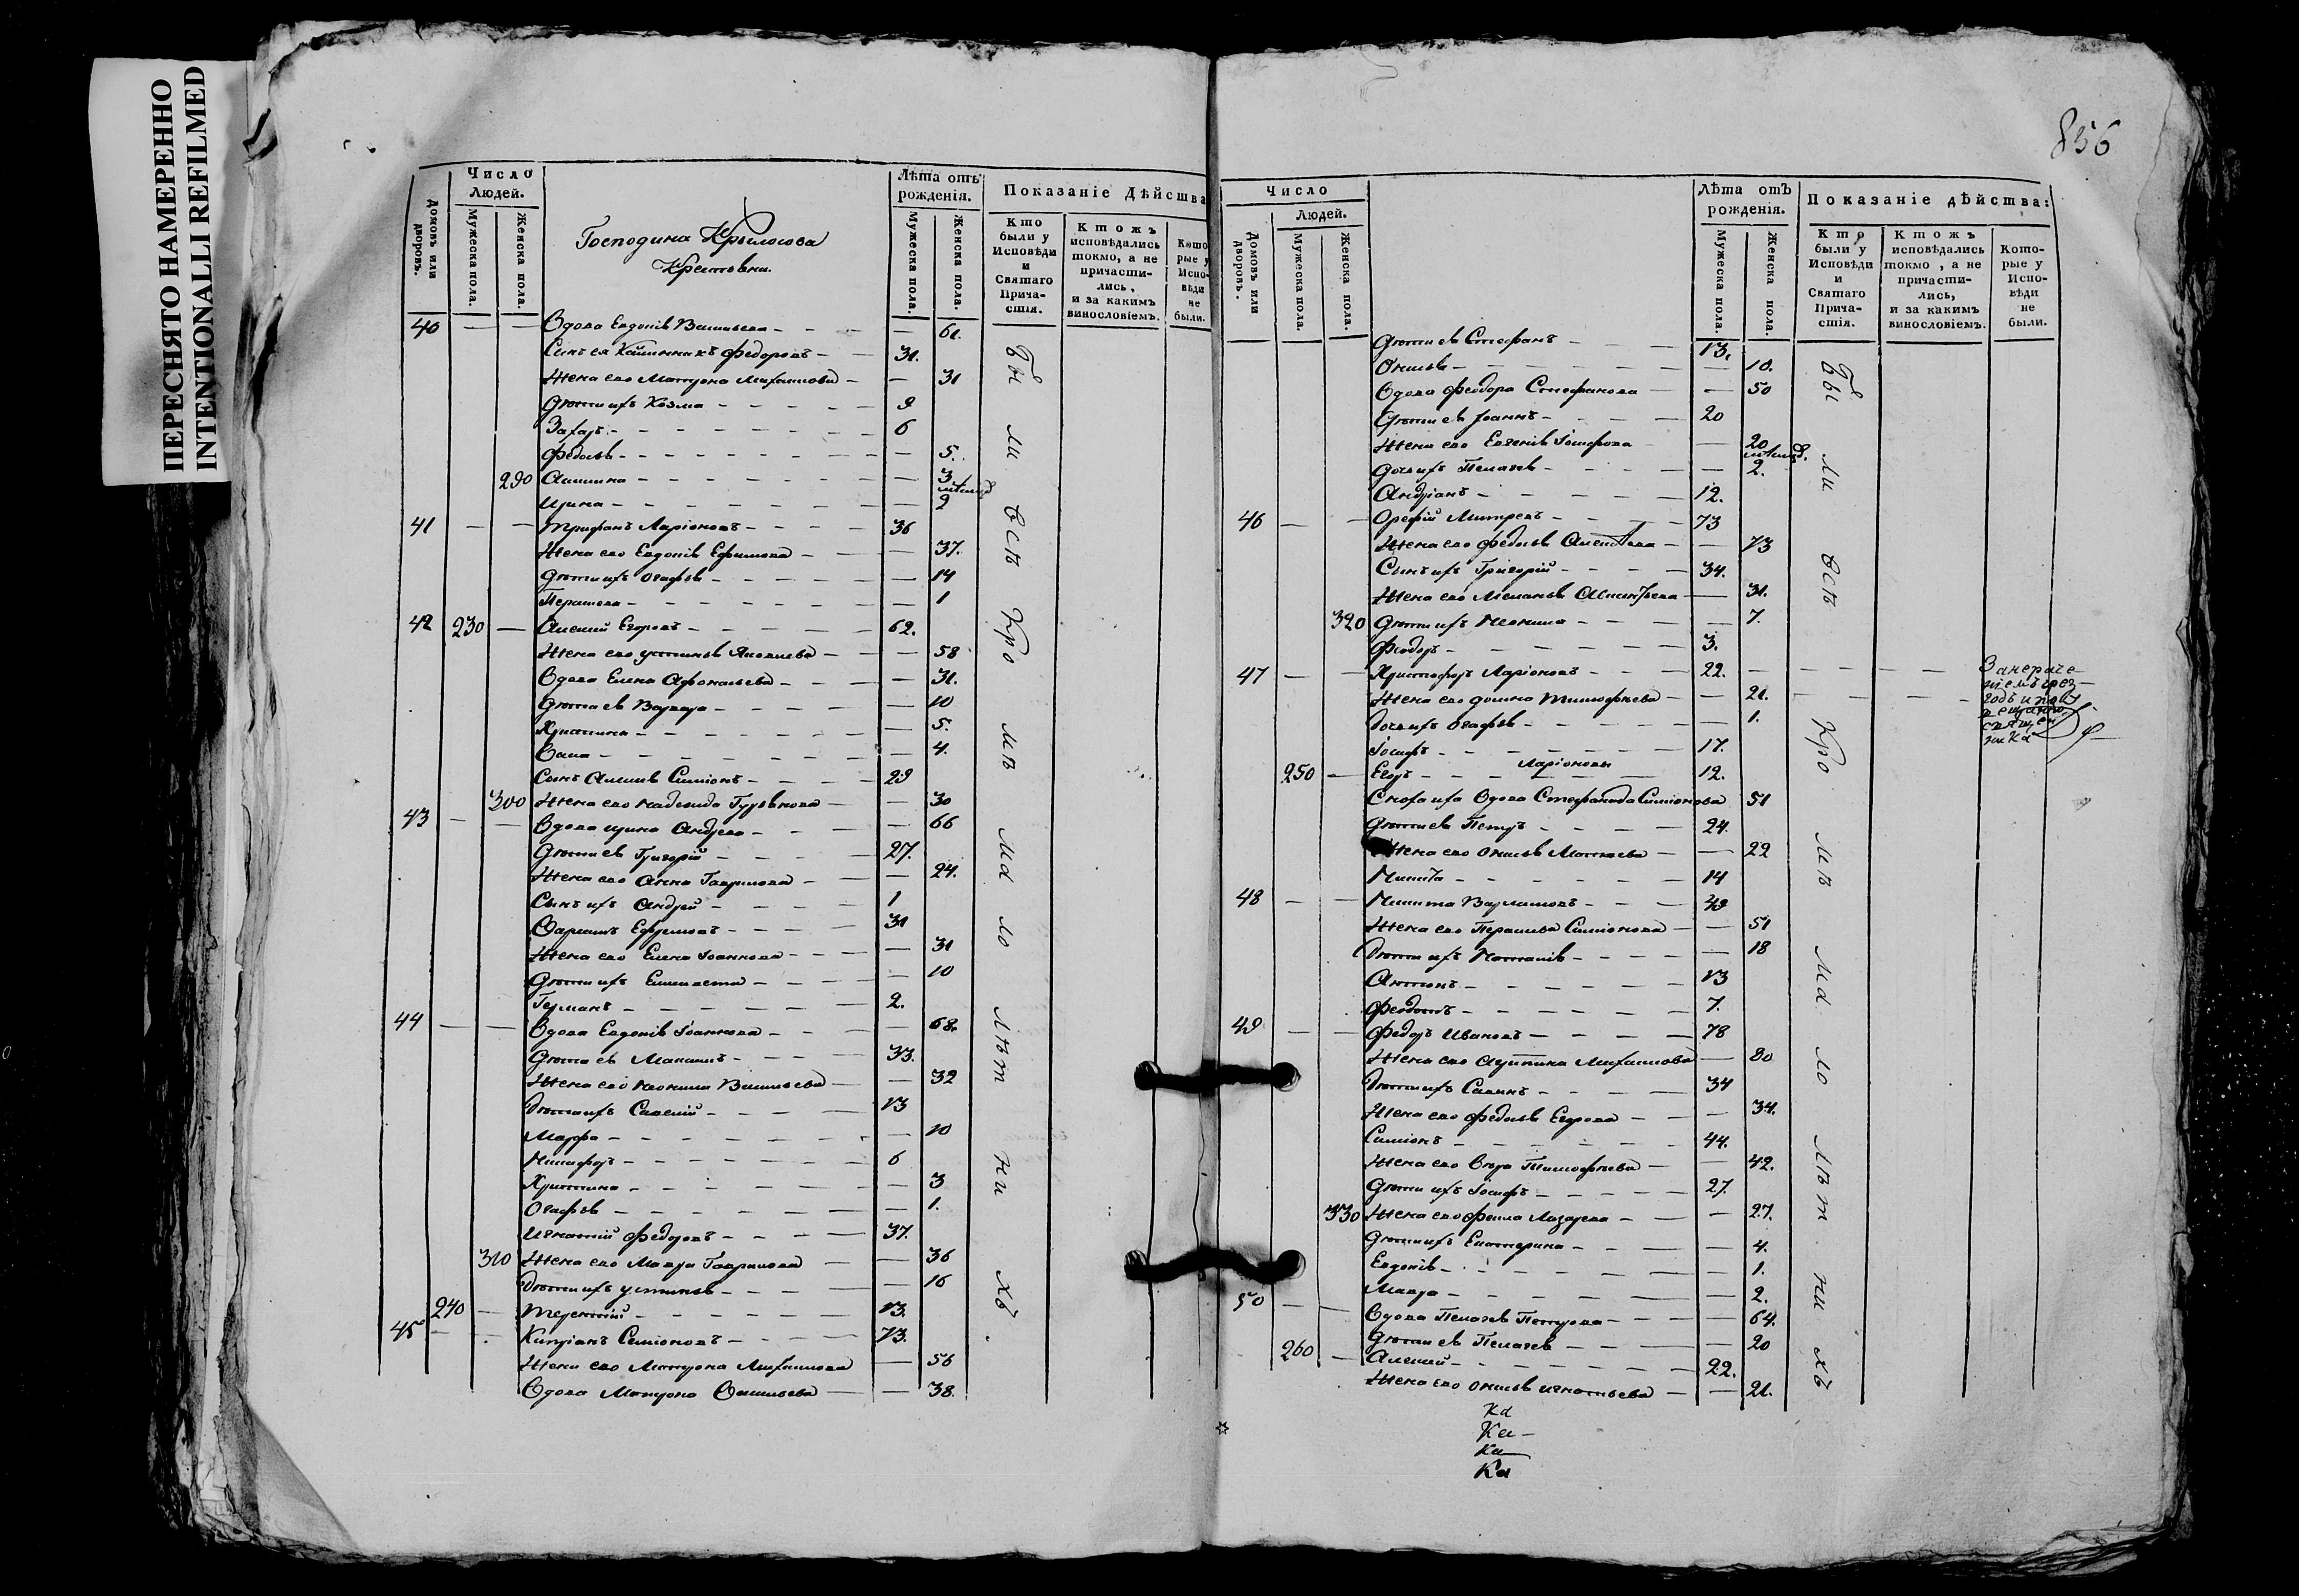 ПЕРЕСНЯТО НАМЕРЕННО
INTENTIONALLI REFILMED
856
Число
Людей.
Домовъ или дворовъ.
Мужеска пола.
Женска пола.
Господина
Лѣта отъ рожденія.
Мужеска пола.
Женска пола.
Показаніе Дѣйства
Кто были у Исповѣди и Святаго Прича-стія.
Ктожъ исповѣдались токмо, а не причасти-лись, и за какимъ винословіемъ.
Кото рые у Испо-вѣди не были.
40 — — Вдова Евдокія Васильева — 61.
Сынъ ея Федоровъ — 31.
Жена его Матрона Михаилова — 31
Дѣти ихъ Козма — 9
Захаръ — 6
Федосья — 5.
290 — 3
Ирина — 2
41 — — Трифанъ Ларіоновъ — 36
Жена его Евдокія Ефимова — 37.
Дѣти ихъ Агафья — 14
1
42 230 — Алексій Егоровъ — 62.
Жена его устинья Яковлева — 58
Вдова Елена Афонасьева — 31.
Дѣти ея Варвара — 10
Христина — 5.
4.
Сынъ Алексія Симіонъ — 29
300 Жена его надежда — 30
43 — — Вдова ирина Андреева — 66
Дѣти ея Григорій — 27.
Жена его Анна Гаврилова — 24.
Сынъ ихъ Андрей — 1
Ефремовъ — 31
Жена его Елена Іоаннова — 31
Дѣти ихъ — 10
Германъ — 2.
44 — — Вдова Евдокія Іоаннова — 68.
Дѣти ея Максимъ — 33.
Жена его неонила Васильева — 32
Дѣти ихъ Савелій — 13
Марфа — 10
Никифоръ — 6
Христина — 3
Агафья — 1.
Игнатій федоровъ — 37.
310 Жена его Мавра Гаврилова — 36
Дѣти ихъ устинья — 16
240 — Терентій — 13.
45 — — Кипріанъ Симіоновъ — 73.
Жена его Матрона Михаилова — 56
Вдова Матрона Васильева — 38.
Бы ли всѣ Кро мѣ ма ло лѣт ни хъ.
Число
Людей.
Домовъ или дворовъ.
Мужеска пола.
Женска пола.
Лѣта отъ рожденія.
Мужеска пола.
Женска пола.
Показаніе дѣйства:
Кто были у Исповѣди и Святаго Прича-стія.
Ктожъ исповѣдались токмо, а не причасти-лись, и за какимъ винословіемъ.
Кото-рые у Испо-вѣди не были.
Дѣти ея Стефанъ — 13.
10.
Вдова Феодора Стефанова — 50
Дѣти ея Іоаннъ — 20
Жена его Евгенія Іосифова — 20
Дочь ихъ Пелагея — 2.
Андріанъ — 12.
46 — — Орефій — 73
Жена его федосья — 73
Сынъ ихъ Григорій — 34.
Жена его Меланья — 31.
320 Дѣти ихъ Неонила — 7.
Феодоръ — 3.
47 — — Христофоръ Ларіоновъ — 22.
Жена его домна Тимофеева — 21.
Дочь ихъ Агафья — 1.
Іосифъ — 17.
Ларіоновы
250 — Егоръ — 12.
Сноха ихъ Вдова Стефанида Симіонова 51
Дѣти ея Петръ — 24.
Жена его Матвѣева — 22
Никита — 14
48 — — Никита Варламовъ — 49
Жена его Симіонова — 51
Дѣти ихъ Наталія — 18
Антонъ — 13
Феодотъ — 7.
49 — — федоръ Ивановъ — 78
Жена его Михаилова — 80
Дѣти ихъ — 34
Жена его федосья Егорова — 34.
Симіонъ — 44.
Жена его Вѣра Тимофеева — 42.
Дѣти ихъ Іосифъ — 27.
330 Жена его Лазарева — 27.
Дѣти ихъ Екатерина — 4.
Евдокія — 1.
Мавра — 2.
50 — — Вдова Пелагея Петрова — 64.
Дѣти ея Пелагея — 20
260 — Алексій — 22.
Жена его игнатьева — 21.
Бы ли всѣ Кро мѣ ма ло лѣт ни хъ
Ка
Ка
Ка
Ка